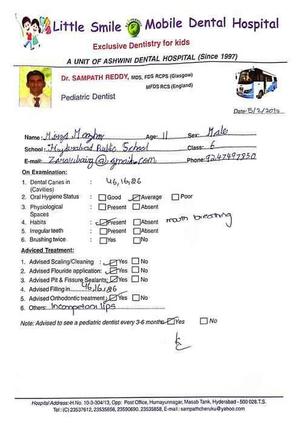 Little Smile Mobile Dental Hospital
Exclusive Dentistry for kids
A UNIT OF ASHWINI DENTAL HOSPITAL (Since 1997)
Dr. SAMPATH REDDY, MDS, FDS RCPS (Glasgow)
MFDS RCS (England)
Pediatric Dentist
Date:
Name: Mirza Age: 11 Sex: Male
School: Hyderabad Public School Class: 6
E-mail: @gmail.com Phone:
On Examination:
1. Dental Caries in (Cavities) : 46,16,86
2. Oral Hygiene Status : Good Average Poor
3. Physiological Spaces : Present Absent
4. Habits : Present Absent mouth breathing
5. Irregular teeth : Present Absent
6. Brushing twice : Yes No
Adviced Treatment:
1. Advised Scaling/Cleaning : Yes No
2. Advised Flouride application: Yes No
3. Advised Pit & Fissure Sealants: Yes No
4. Advised Filling in 46,16,86
5. Advised Orthodontic treatment: Yes No
6. Others: Incompetent lips
Note: Advised to see a pediatric dentist every 3-6 months Yes No
Hospital Address:-H.No. 10-3-304/13, Opp: Post Office, Humayunnagar, Masab Tank, Hyderabad - 500 028.T.S.
Tel: (C) 23537612, 23535858, 23590690, 23535858, E-mail: sampathcheruku@yahoo.com